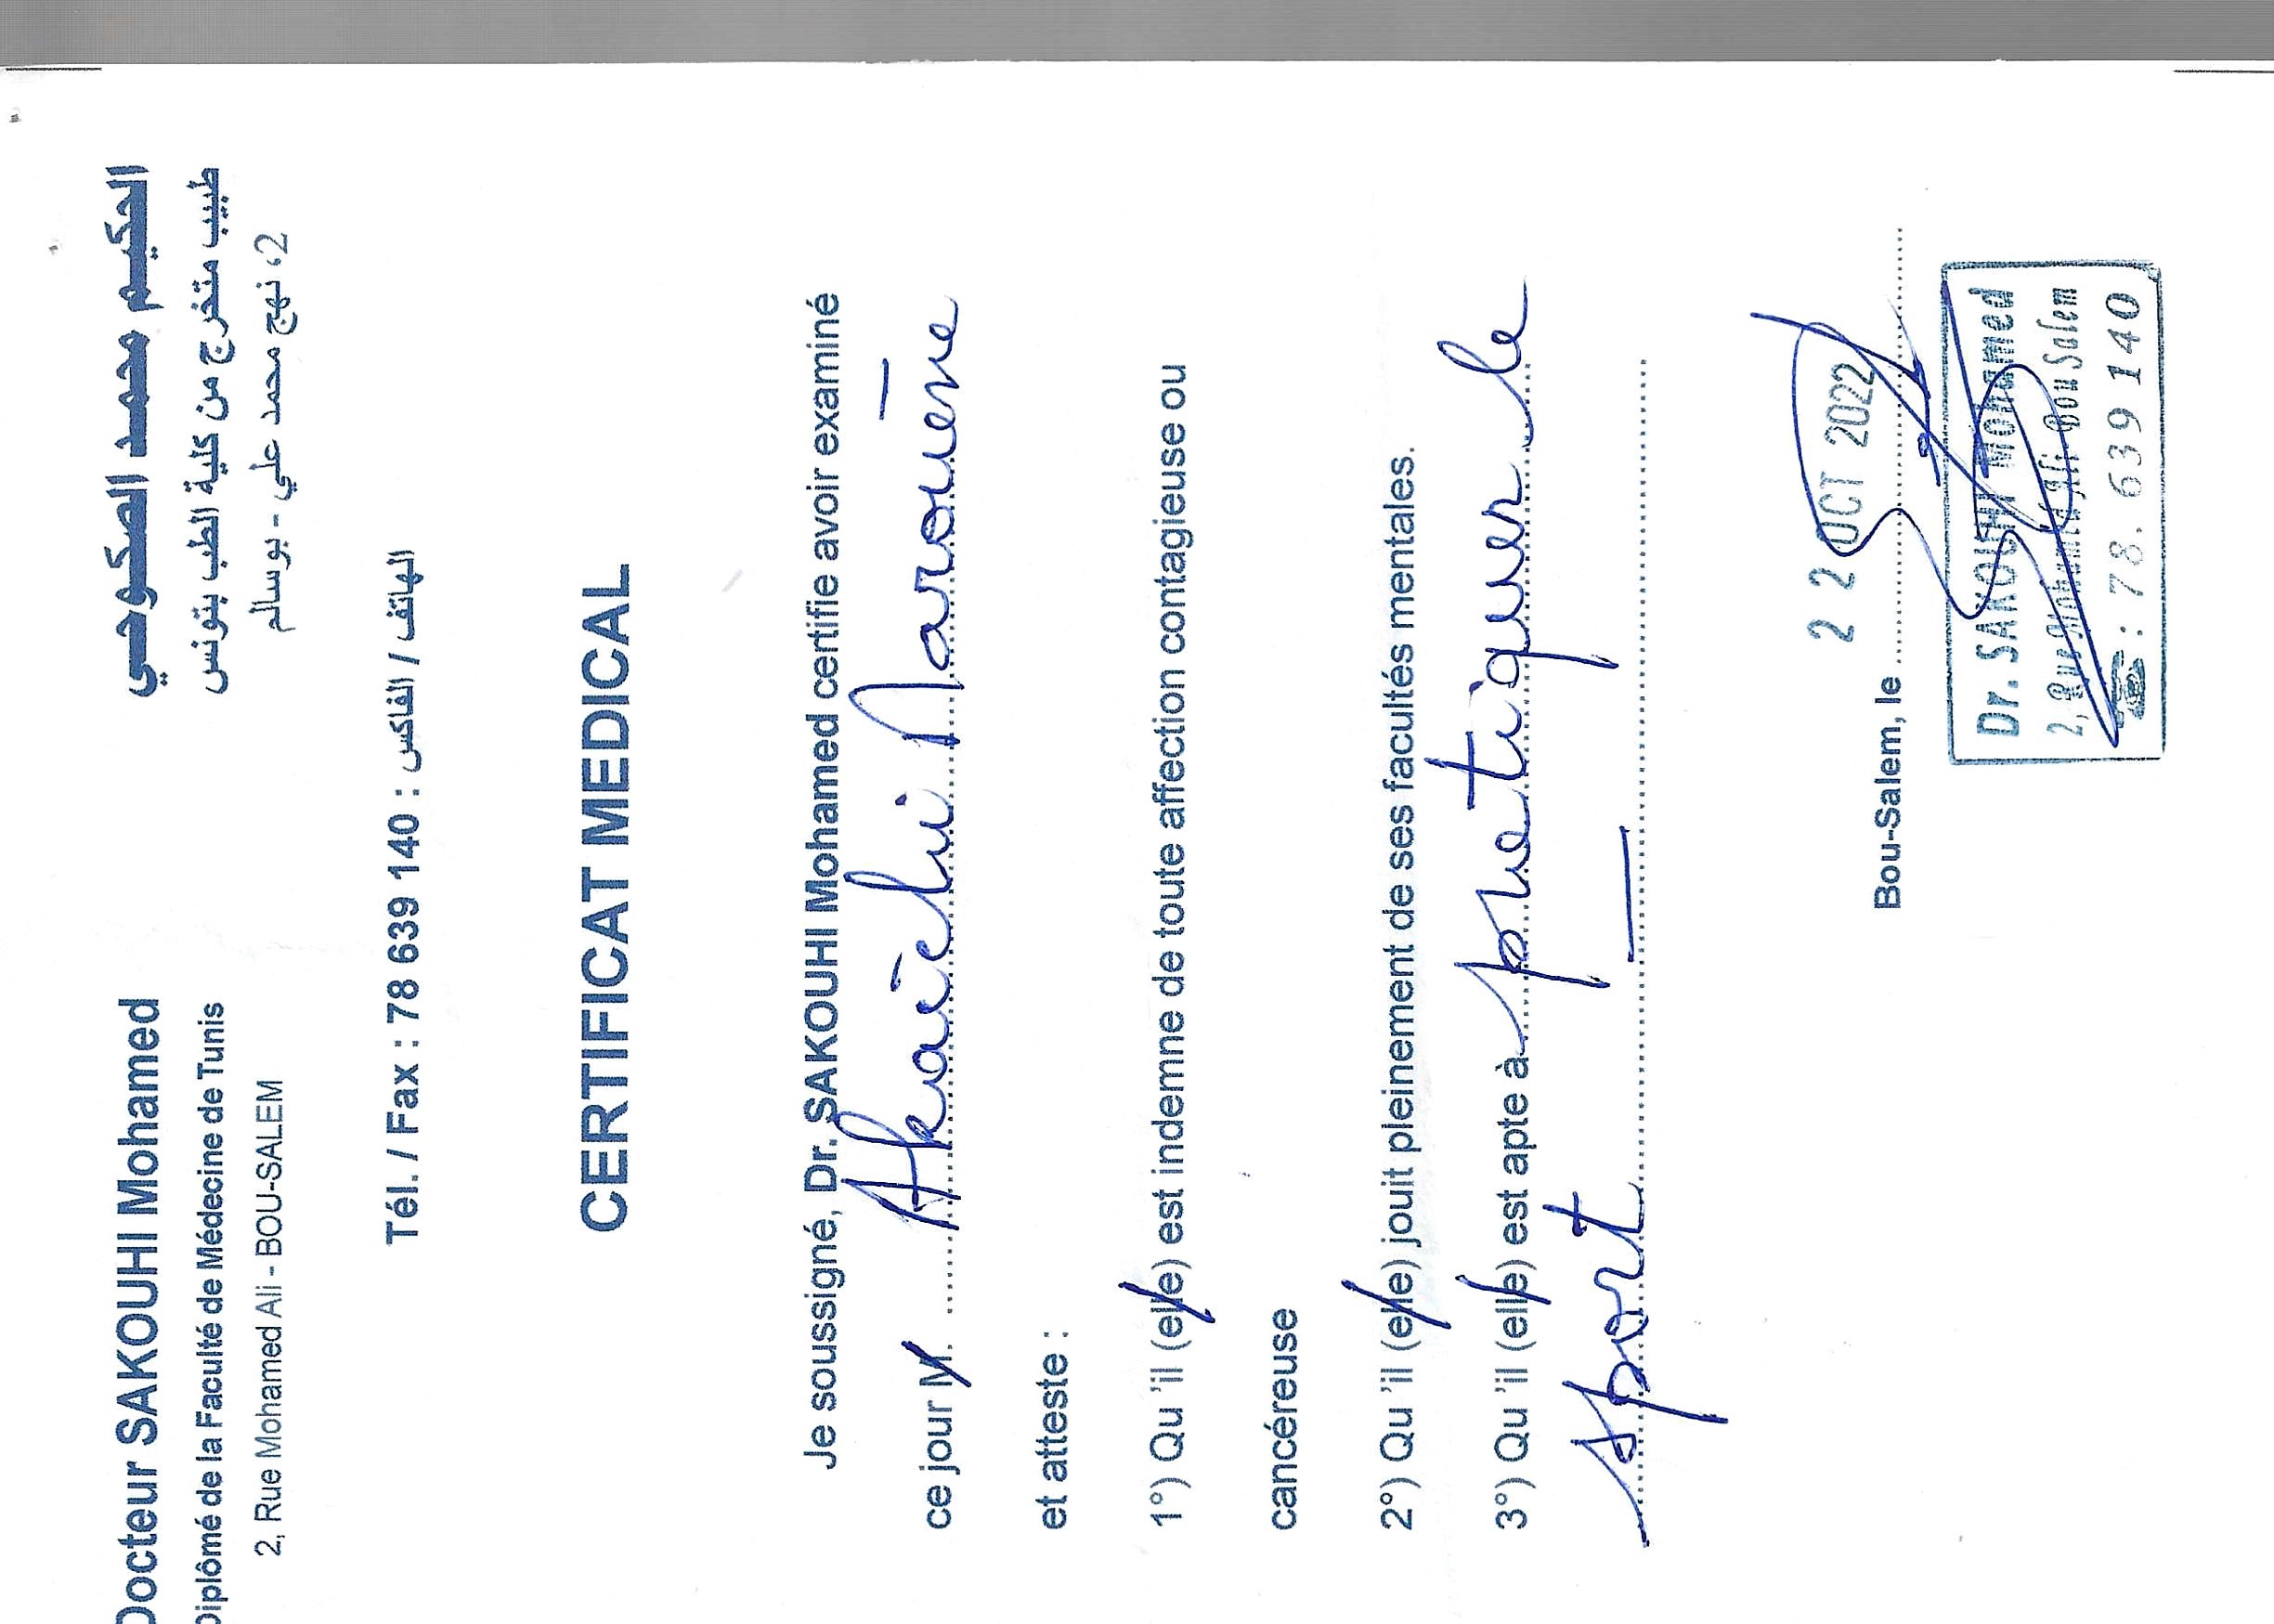 Docteur SAKOUHI Mohamed
Diplômé de la Faculté de Médecine de Tunis
2, Rue Mohamed Ali - BOU-SALEM
الحكيم محمد الصكوحي
طبيب متخرج من كلية الطب بتونس
2، نهج محمد علي - بوسالم
Tél. / Fax : 78 639 140 : الهاتف / الفاكس
CERTIFICAT MEDICAL
Je soussigné, Dr. SAKOUHI Mohamed certifie avoir examiné
ce jour M. Akaichi Narouène
et atteste :
1°) Qu 'il (elle) est indemne de toute affection contagieuse ou
cancéreuse
2°) Qu 'il (elle) jouit pleinement de ses facultés mentales.
3°) Qu 'il (elle) est apte à pratiquer le
sport
22 OCT 2022
Bou-Salem, le
Dr. SAKOUHI Mohamed
2, Rue Mohamed Ali-Bou Salem
☎ : 78. 639 140